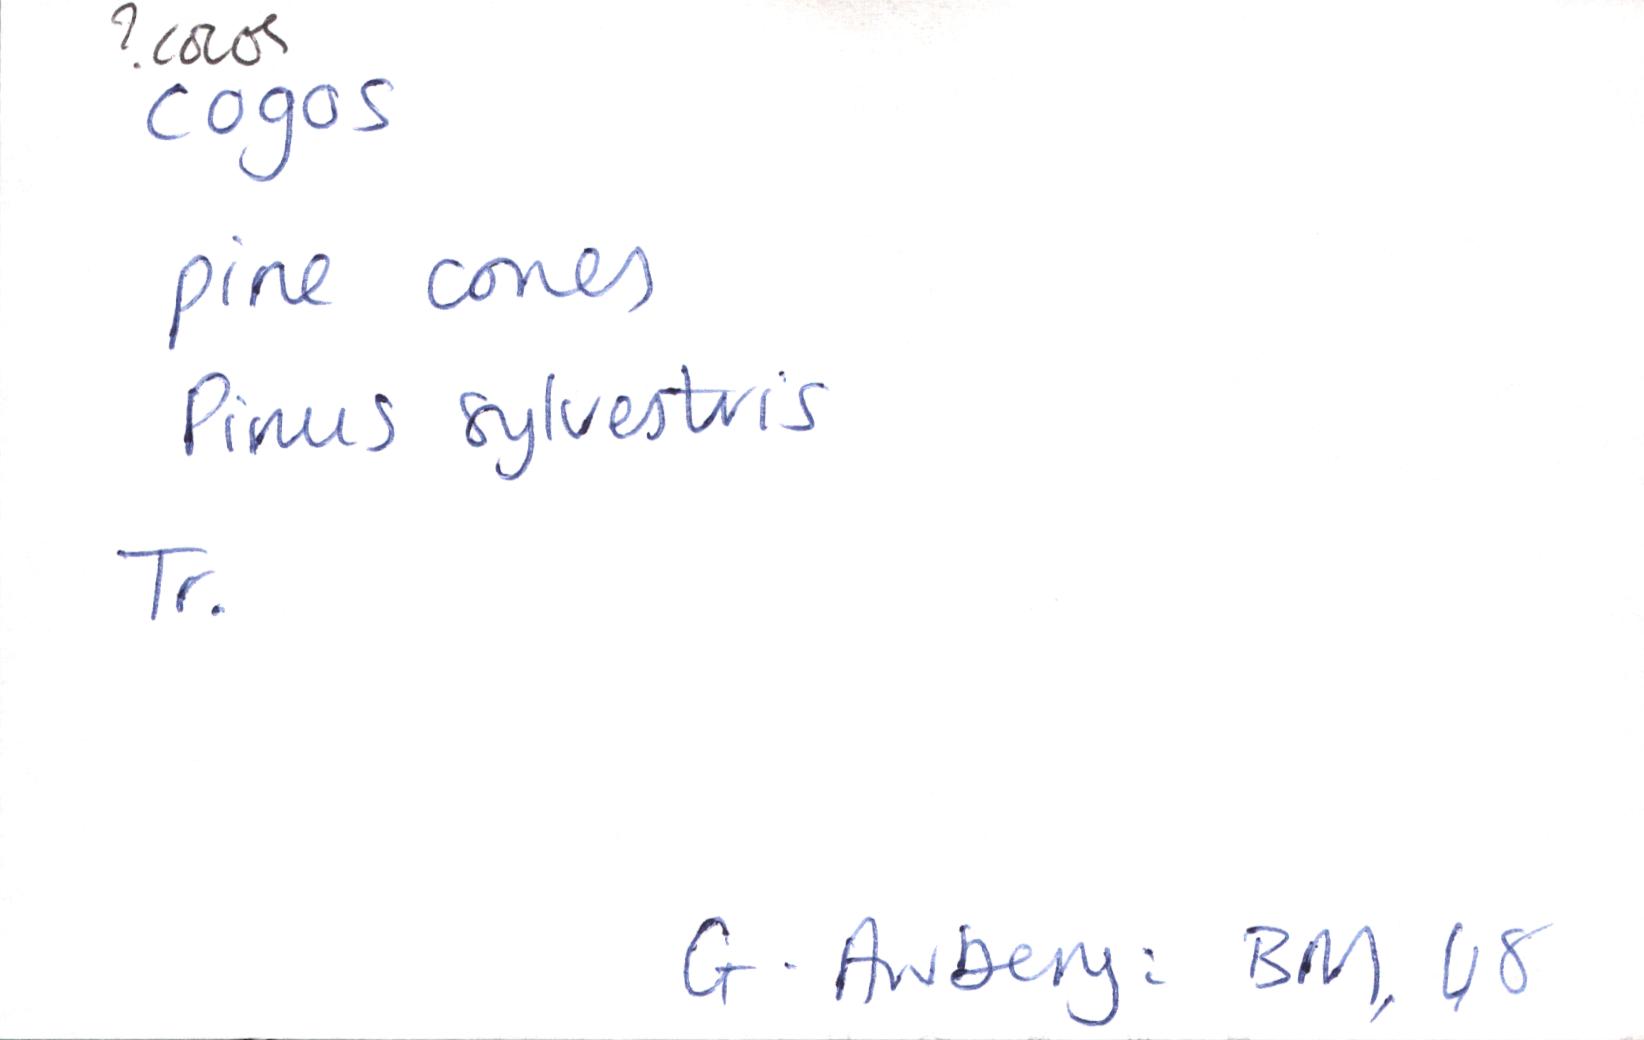 ? cocos
cogos
pine cones
Pinus sylvestris
Tr.
G. Awbery: BM, 48